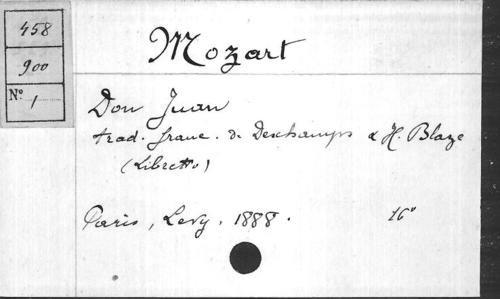 458
900
No. 1
Mozart
Don Juan
trad. franc. de Deschamps & H. Blaze
(Libretto)
Paris, Levy. 1888. 16°